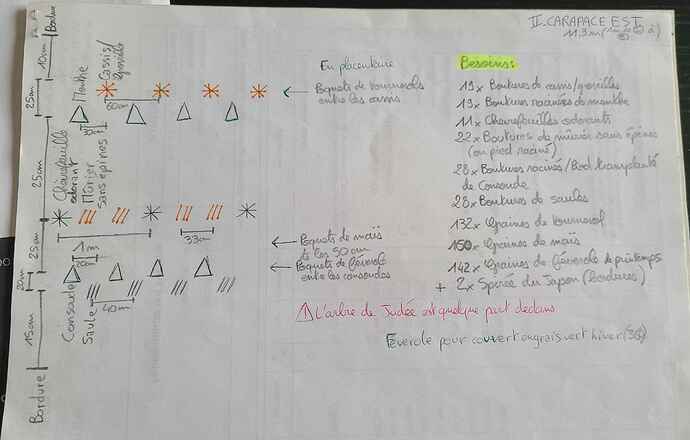 II. CARAPACE EST
11.3m
En placenture
Besoins:
Poquets de tournesols
entre les cassis
19x Boutures de cassis/groseilles
19x Boutures racinées de menthe
11x Chèvrefeuilles odorants
22x Boutures de mûrier sans épines
(ou pied raciné)
28x Boutures racinés/Bout transplanté
de Consoude
28x Boutures de saules
132x Graines de tournesol
150x Graines de maïs
142x Graines de féverole de printemps
+ 2x Spirée du Japon (bordures)
Poquets de maïs
ts les 50 cm
Poquets de féverole
entre les consoudes
L'arbre de Judée est quelque part dedans
Féverole pour couvert engrais vert hiver
Bordure
10cm
25cm
25cm
25cm
20cm
15cm
Bordure
Menthe
Cassis/
groseille
60cm
Chèvrefeuille
odorant
Mûrier
sans épines
1m
33cm
20cm
Consoude
Saule
40cm